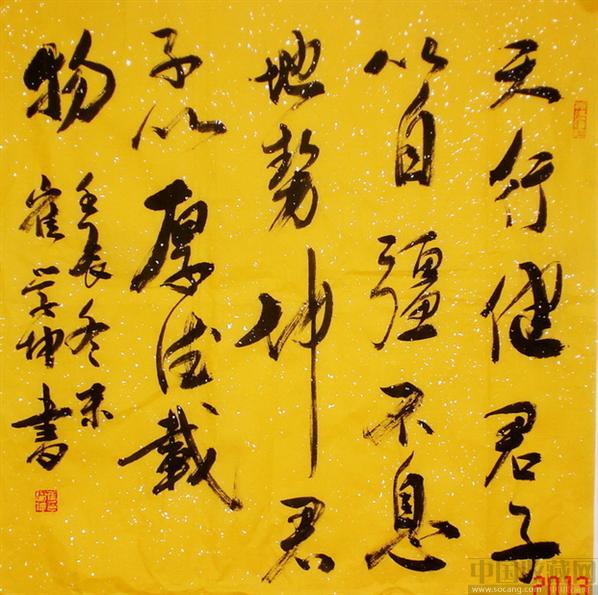 天行健君子
以自疆不息
地势坤君
子以厚德载
物
壬辰冬末
崔学坤书
中国收藏网
www.socang.com
2013